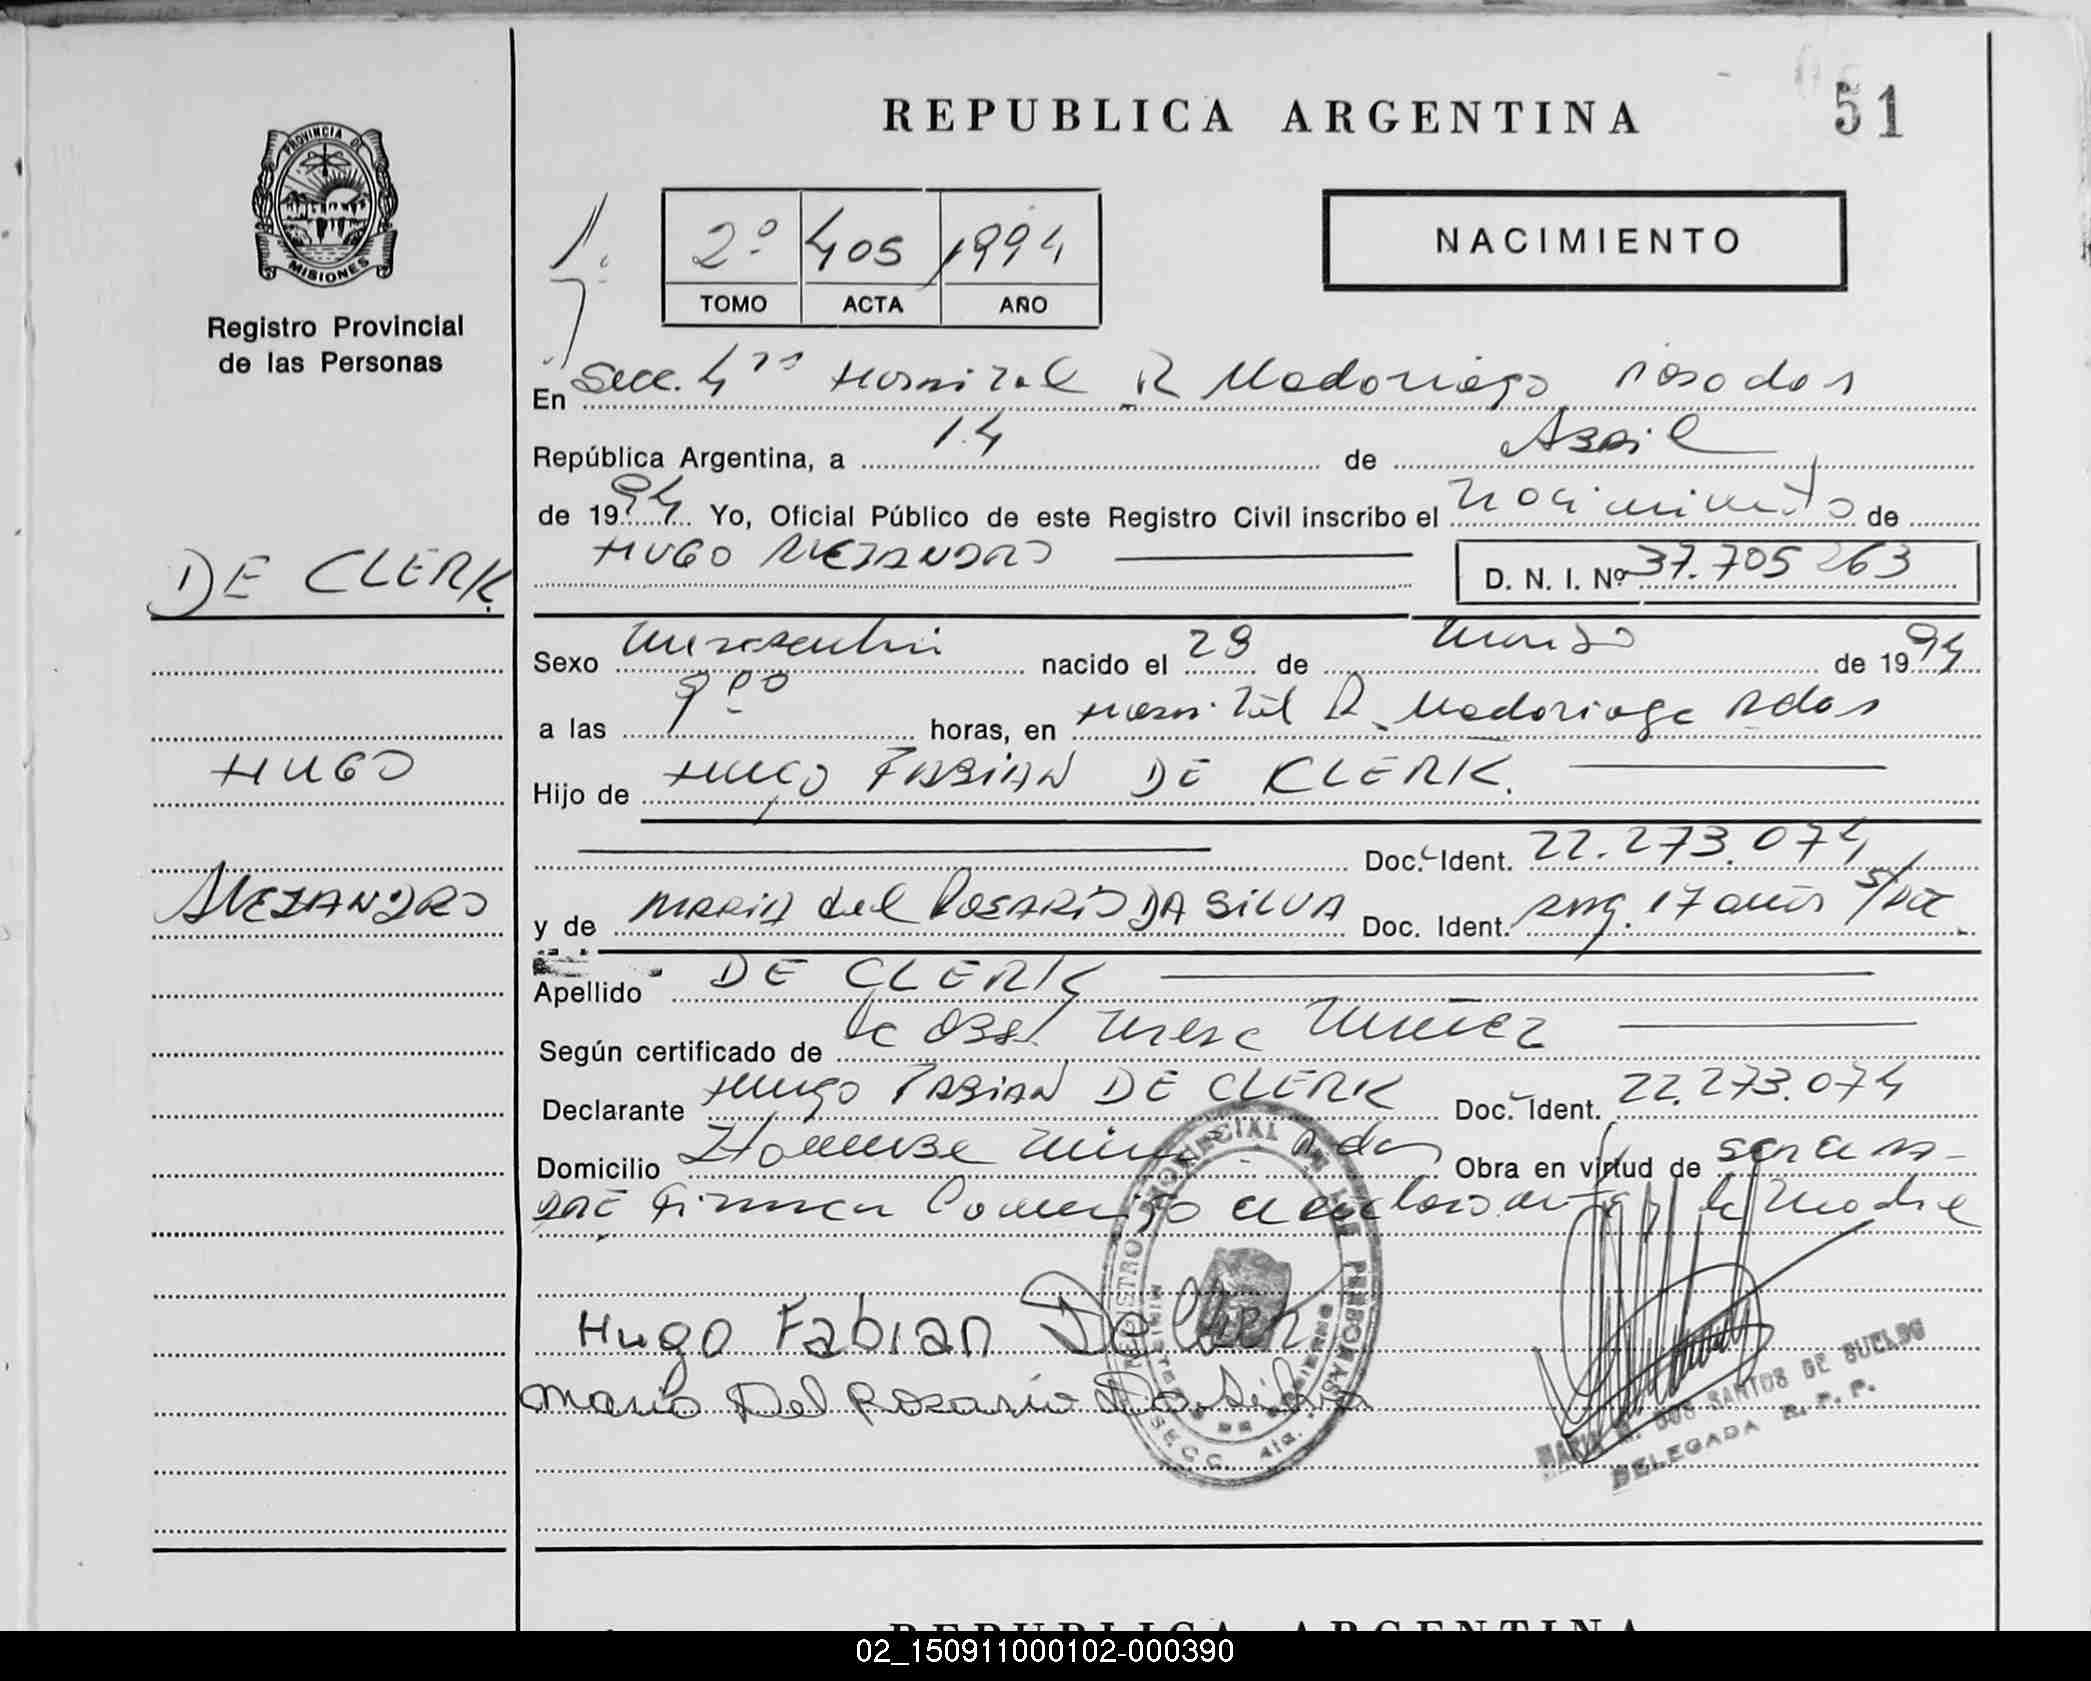 REPUBLICA ARGENTINA
51
PROVINCIA DE MISIONES
Registro Provincial
de las Personas
2º 405 1994
TOMO ACTA AÑO
NACIMIENTO
En Secc. 4ta Hospital R Madariaga Posadas
República Argentina, a 14 de Abril
de 1994 Yo, Oficial Público de este Registro Civil inscribo el nacimiento de
HUGO ALEJANDRO
D. N. I. Nº 37.705 263
DE CLERK
HUGO
ALEJANDRO
Sexo masculino nacido el 29 de marzo de 1994
a las horas, en Hospital R. Madariaga Pdas
Hijo de HUGO FABIAN DE CLERK.
Doc. Ident. 22.273.074
y de MARIA del ROSARIO DA SILVA Doc. Ident. Arg. 17 años s/doc
Apellido DE CLERK
Según certificado de la Obst
Declarante HUGO FABIAN DE CLERK Doc. Ident. 22.273.074
Domicilio Pdas Obra en virtud de ser el pa-
dre Firman Conmigo el declarante y la Madre
Hugo Fabian De
Maria Del Rosario Da Silva
REGISTRO PROVINCIAL DE LAS PERSONAS
MINISTERIO DE GOBIERNO
SECC. 4ta.
MARIA DOS SANTOS DE
DELEGADA R. P. P.
REPUBLICA ARGENTINA
02_150911000102-000390